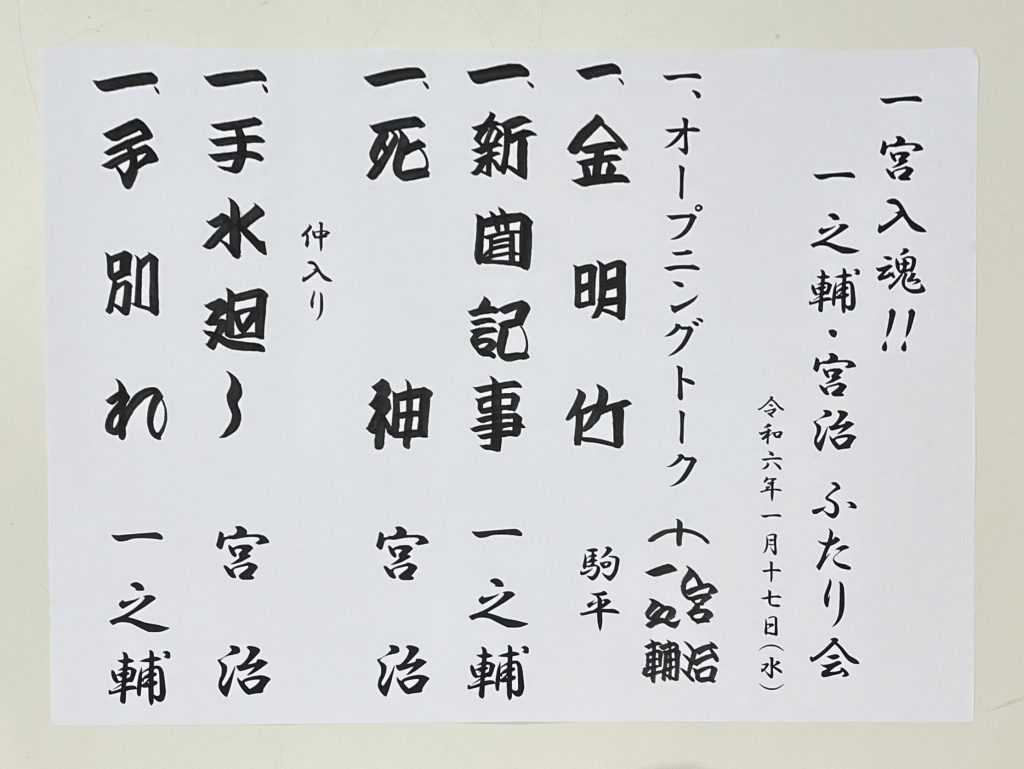 一宮入魂!!
一之輔・宮治 ふたり会
令和六年一月十七日(水)
一、オープニングトーク 宮治 一之輔
一、金明竹 駒平
一、新聞記事 一之輔
一、死神 宮治
仲入り
一、手水廻し 宮治
一、子別れ 一之輔